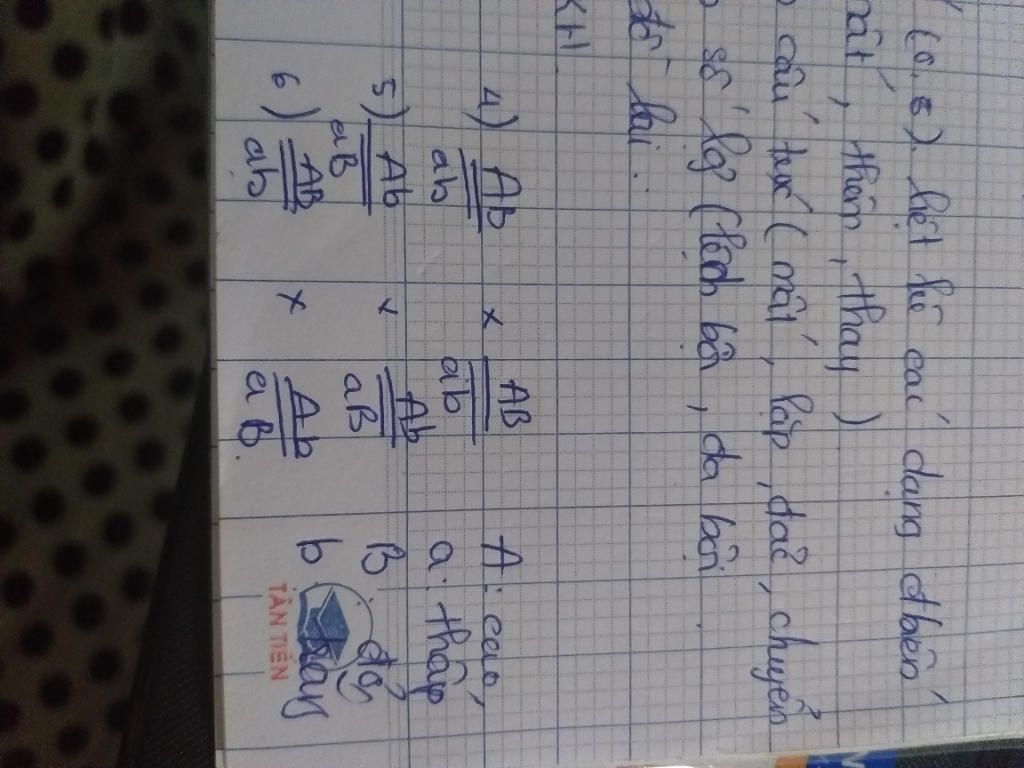 (0,5) liệt kê các dạng đbiến
mất, thêm, thay)
cấu trúc (mất, lặp, đảo, chuyển
số lg (lệch bội, đa bội
đồ lai.
KH
4) Ab/ab x AB/ab A: cao
a: thấp
5) Ab/aB x Ab/aB B đỏ
6) AB/ab x Ab/aB. b
TÂN TIẾN